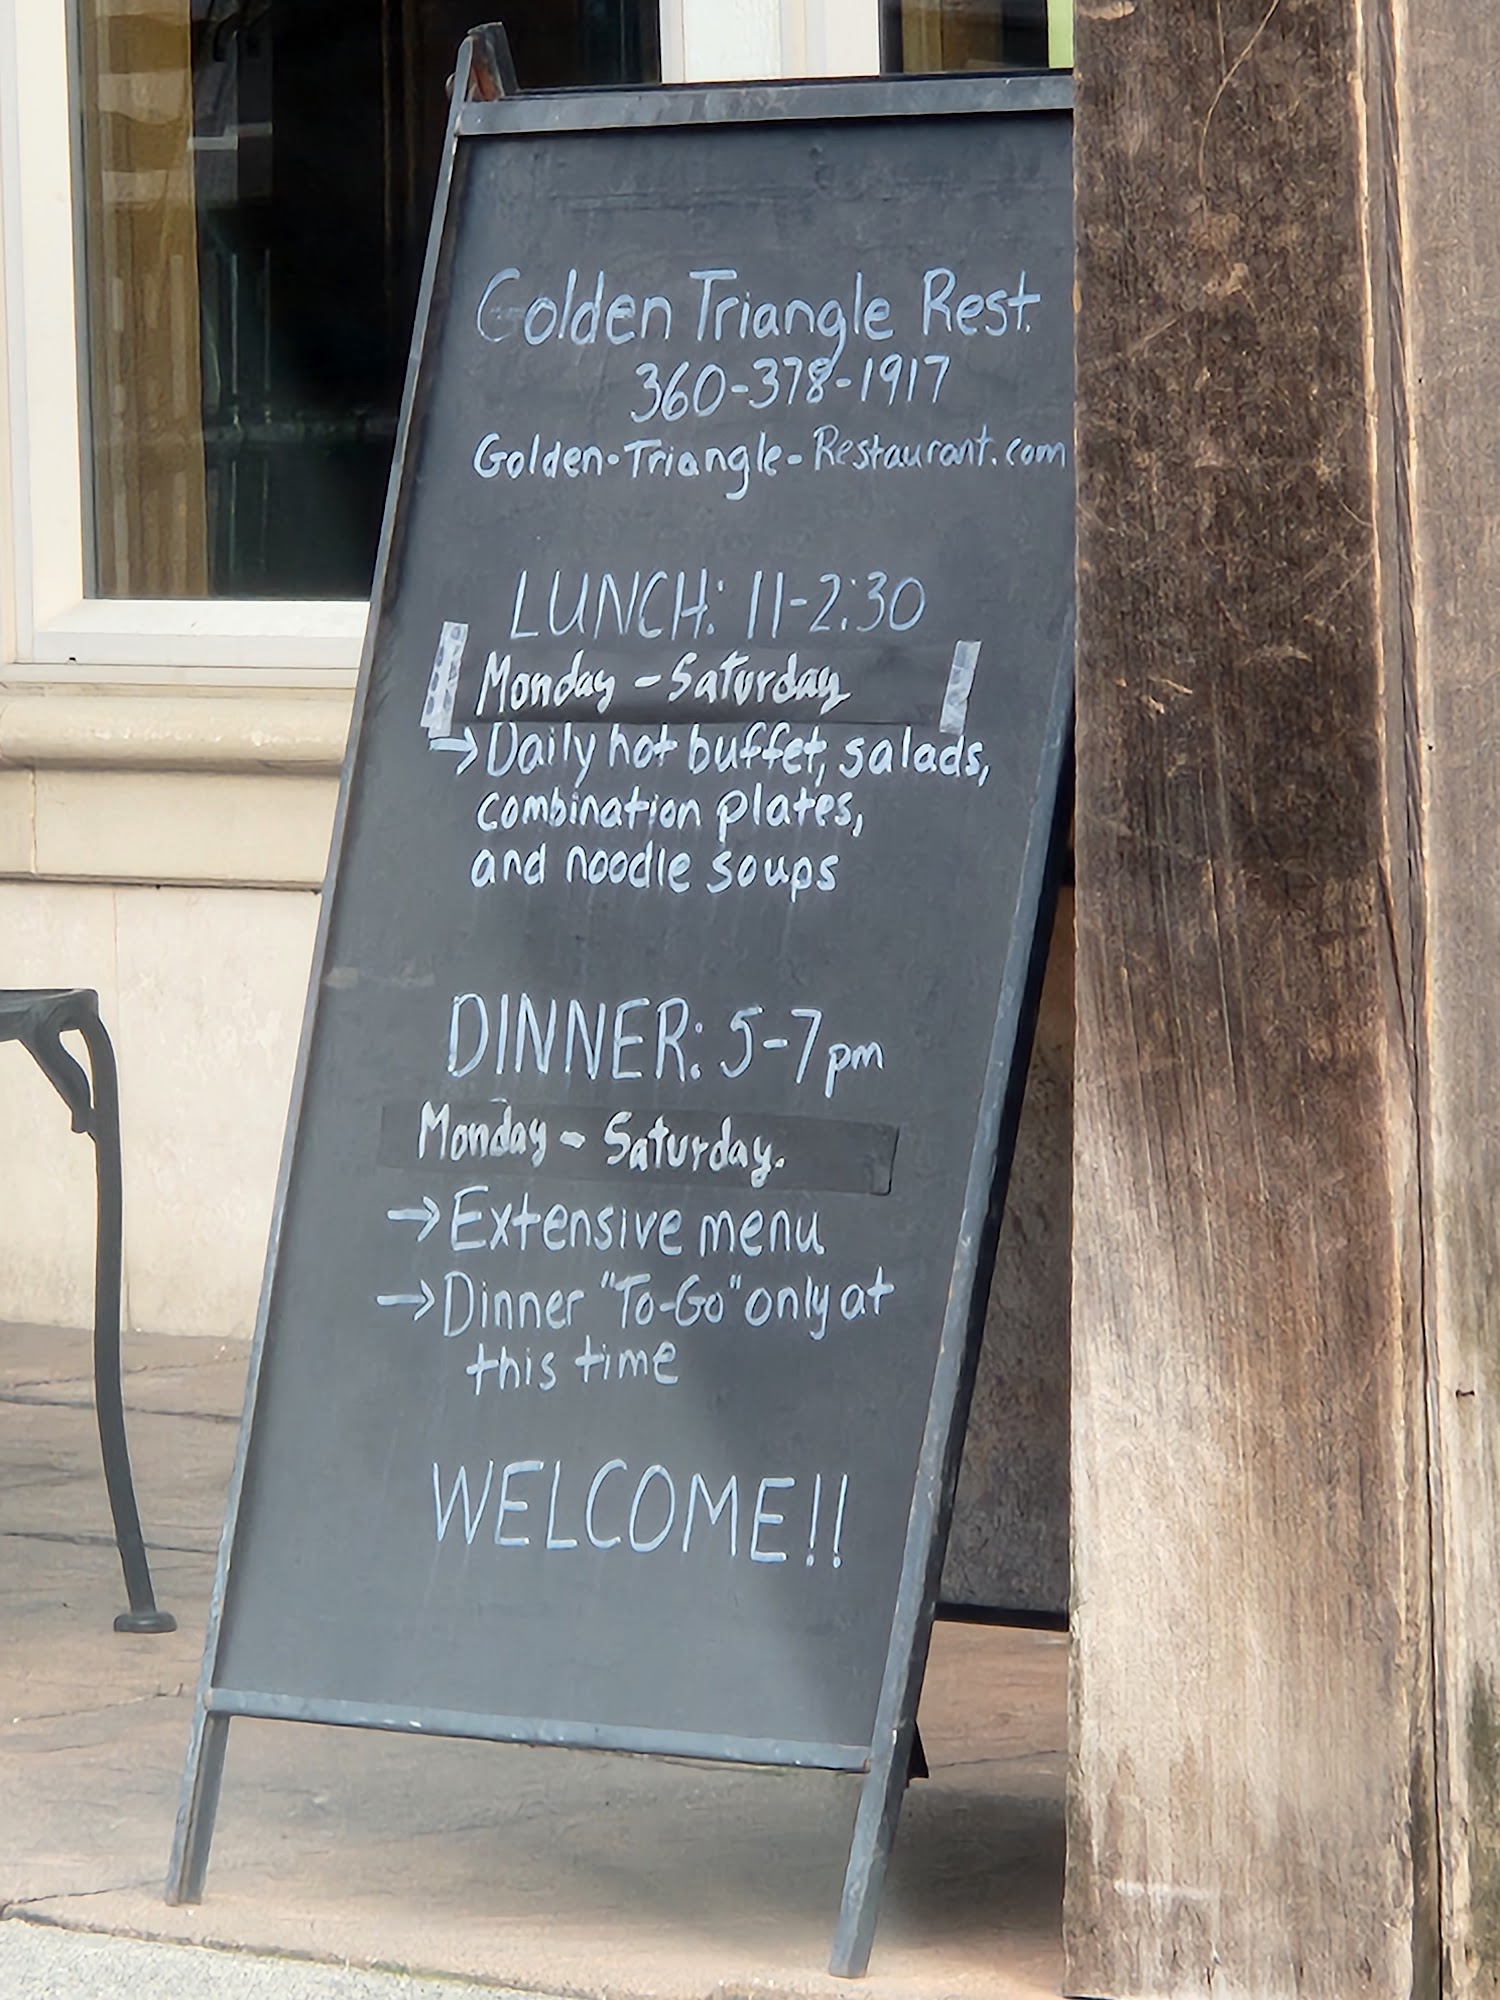 Golden Triangle Rest.
360-378-1917
Golden-Triangle-Restaurant.com
LUNCH: 11-2:30
Monday - Saturday
→ Daily hot buffet, salads,
combination plates,
and noodle soups
DINNER: 5-7pm
Monday - Saturday.
→ Extensive menu
→ Dinner "To-Go" only at
this time
WELCOME!!